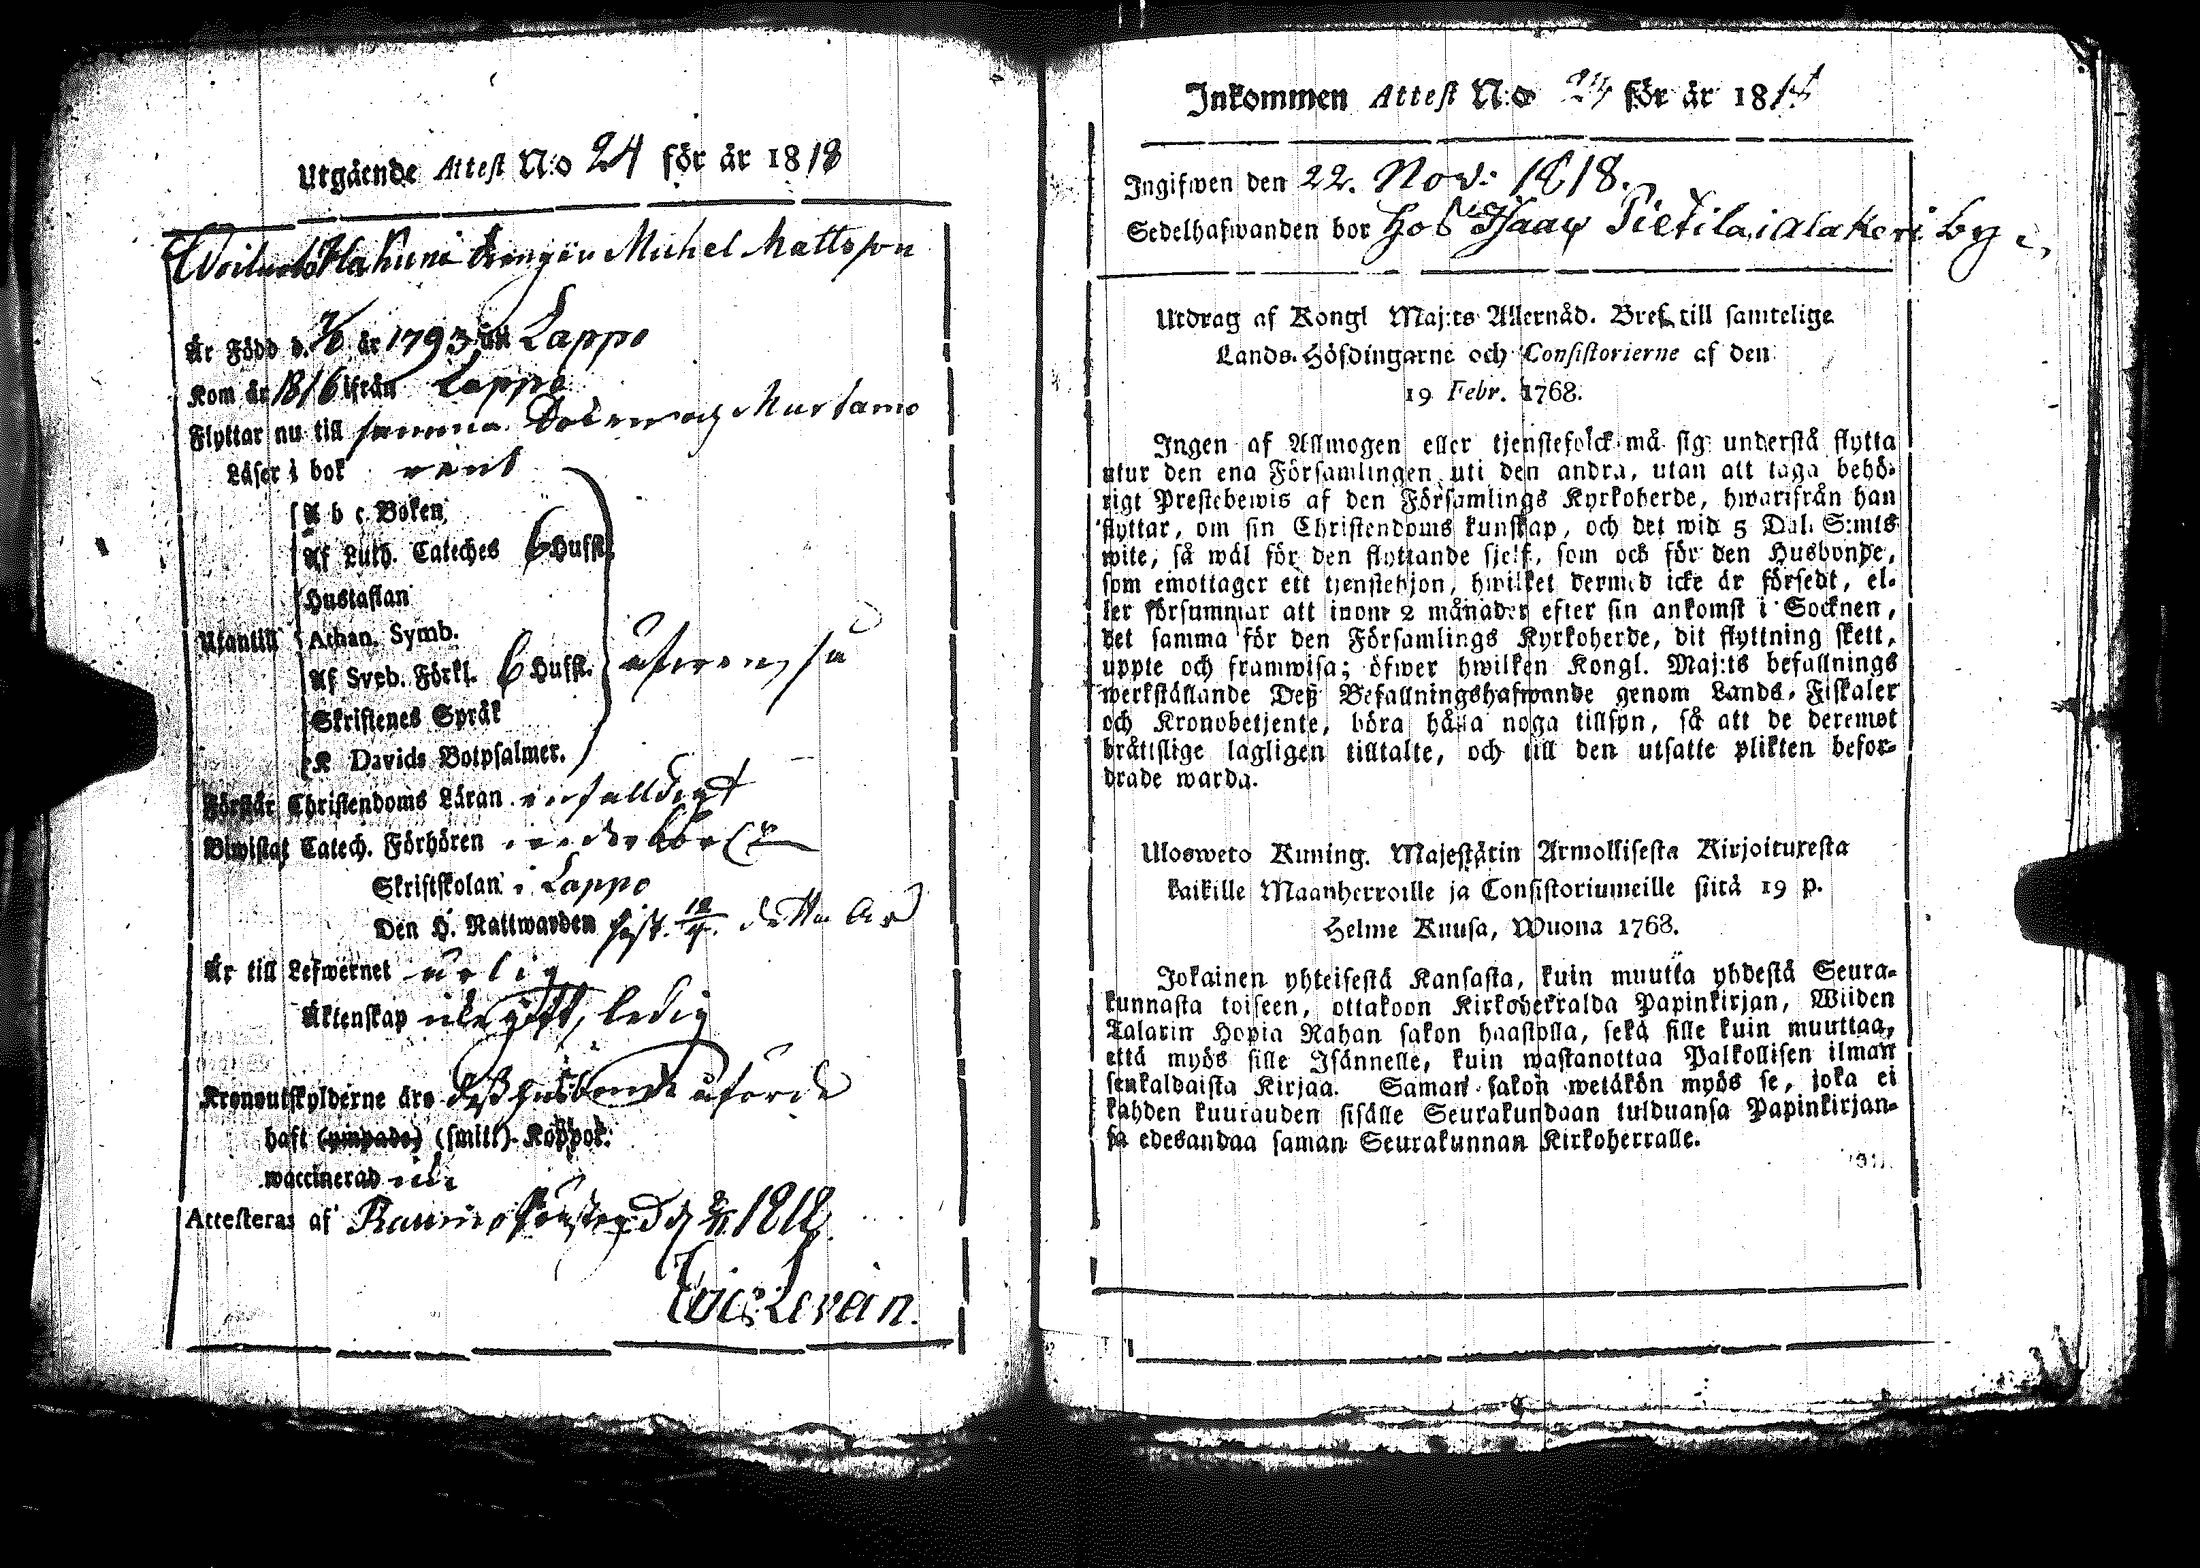 Utgående Attest N:o 24 för år 1818
Drängen Michel Mattsson
Är Född d. 7/6 år 1793 uti Lappo
Kom år 1816 ifrån Lappo
Flyttar nu till samma Socken och Murtamo
Läser i bok rent
A b c Boken
Af Luth. Cateches 6 Hufst.
Hustaflan
Utantill Athan. Symb.
Af Sveb. Förkl. 6 Hufst.
Skriftenes Språk
K Davids Botpsalmer.
Förstår Christendoms Läran enfalldigt
Biwistat Catech. Förhören
Skriftskolan i Lappo
Den H. Nattwarden sist. detta år
Är till Lefwernet ärlig
Äktenskap icke gift, ledig
Kronoutskylderne äro dess husbonde
haft (ympade) (smitt) Koppor.
waccinerad icke
Attesteras af 1818.
Eric Levein.
Inkommen Attest N:o 24 för år 1818
Ingifwen den 22. Nov: 1818.
Sedelhafwanden bor Hos Isaac Pietila i Alakeri by
Utdrag af Kongl Maj:ts Allernåd. Bref till samtelige
Lands-Höfdingarne och Consistorierne af den
19 Febr. 1768.
Ingen af Allmogen eller tjenstefolck må sig understå flytta
utur den ena Församlingen uti den andra, utan att taga behö-
rigt Prestebewis af den Församlings Kyrkoherde, hwarifrån han
flyttar, om sin Christendoms kunskap, och det wid 5 Dal. S:mts
wite, så wäl för den flyttande sjelf, som ock för den Husbonde,
som emottager ett tjenstehjon, hwilket dermed icke är försedt, el-
ler försummar att inom 2 månader efter sin ankomst i Socknen,
det samma för den Församlings Kyrkoherde, dit flyttning skett,
uppte och framwisa; öfwer hwilken Kongl. Maj:ts befallnings
werkställande Deß Befallningshafwande genom Lands-Fiskaler
och Kronobetjente, böra hålla noga tillsyn, så att de deremot
bråttslige lagligen tilltalte, och till den utsatte plikten befor-
drade warda.
Ulosweto Kuning. Majestätin Armollisesta Kirjoituxesta
kaikille Maanherroille ja Consistoriumeille siitä 19 p.
Helme Kuusa, Wuona 1768.
Jokainen yhteisestä Kansasta, kuin muutta yhdestä Seura-
kunnasta toiseen, ottakoon Kirkoherralda Papinkirjan, Wiiden
Talarin Hopia Rahan sakon haastolla, sekä sille kuin muuttaa,
että myös sille Isännelle, kuin wastanottaa Palkollisen ilman
senkaldaista Kirjaa. Saman sakon wetäkön myös se, joka ei
kahden kuukauden sisälle Seurakundaan tulduansa Papinkirjan-
sa edesandaa saman Seurakunnan Kirkoherralle.